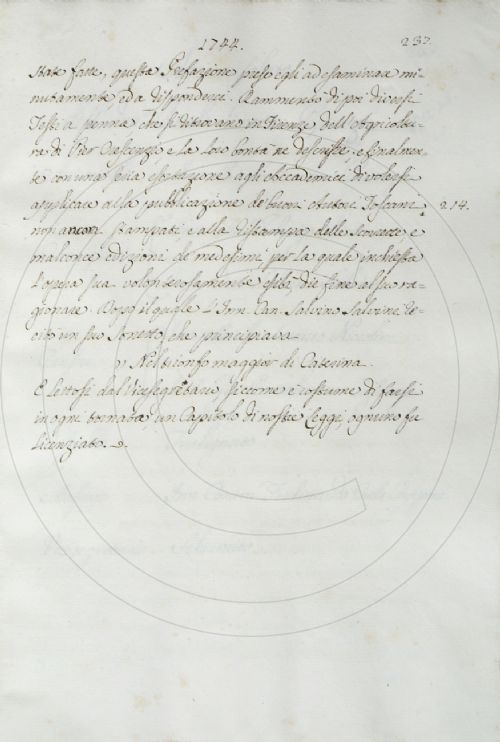 1744.
237.
state fatte, questa Prefazione prese egli ad esaminar mi-
nutamente ed a rispondere. Rammentò di poi diversi
Testi a penna che si ritrovano in Firenze dell'Agricoltu-
ra di Pier Crescenzi e la loro bontà ne descrisse, e finalmen-
te con una seria esortazione agli Accademici di volersi
applicare alla pubblicazione de' buoni Autori Toscani 214.
non ancora stampati, e alla ristampa delle scorrette e
malconce edizioni de' medesimi per la quale inchiesta
l'opera sua volonterosamente esibì, diè fine al suo ra-
gionare. Dopo il quale l'Inn. Can. Salvino Salvini re-
citò un suo Sonetto, che principiava
Nel trionfo maggior di Caterina.
E lettosi dal Vicesegretario, siccome è costume di farsi
in ogni tornata un Capitolo di nostre Leggi, ognuno fu
licenziato.